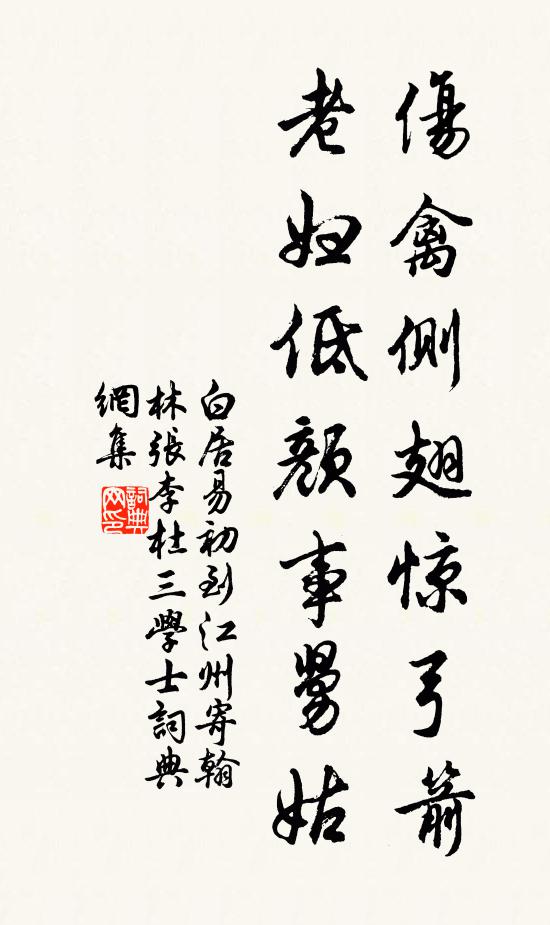 傷禽側翅惊弓箭
老妇低顏事舅姑
白居易初到江州寄翰
林張李杜三學士詞典
網集
詞典
网印